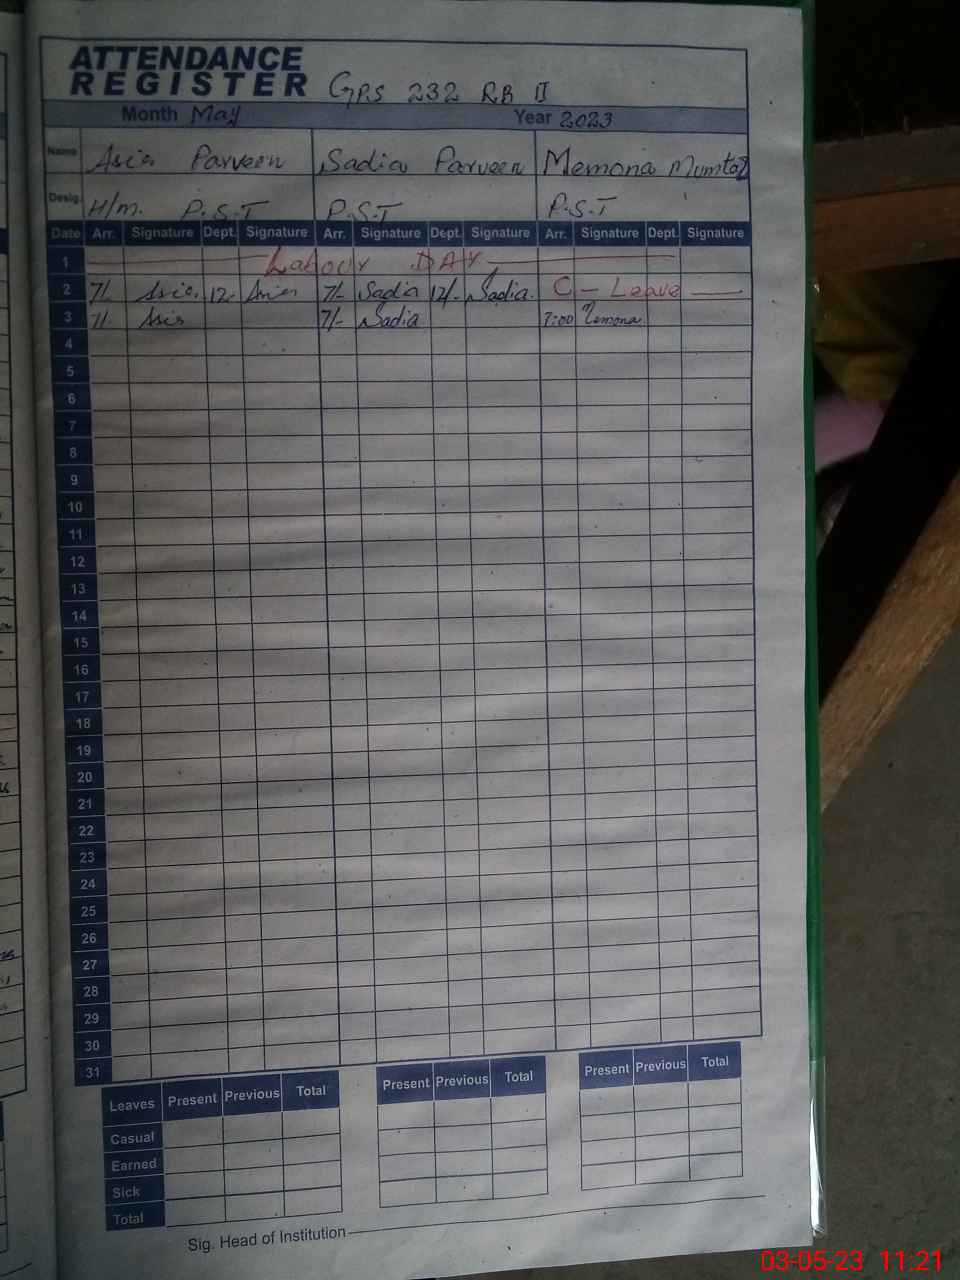 ATTENDANCE
REGISTER GPS 232 RB II
Month May Year 2023
Name Asia Parveen Sadia Parveen Memona Mumtaz
Desig. H/m. P.S.T P.S.T P.S.T
Date Arr. Signature Dept. Signature Arr. Signature Dept. Signature Arr. Signature Dept. Signature
1 Labour DAY
2 7/- Asia 12- Asia 7/- Sadia 12/- Sadia. C - Leave
3 7/- Asia 7/- Sadia 7:00 Memona
4
5
6
7
8
9
10
11
12
13
14
15
16
17
18
19
20
21
22
23
24
25
26
27
28
29
30
31
Leaves Present Previous Total Present Previous Total Present Previous Total
Casual
Earned
Sick
Total
Sig. Head of Institution
03-05-23 11:21